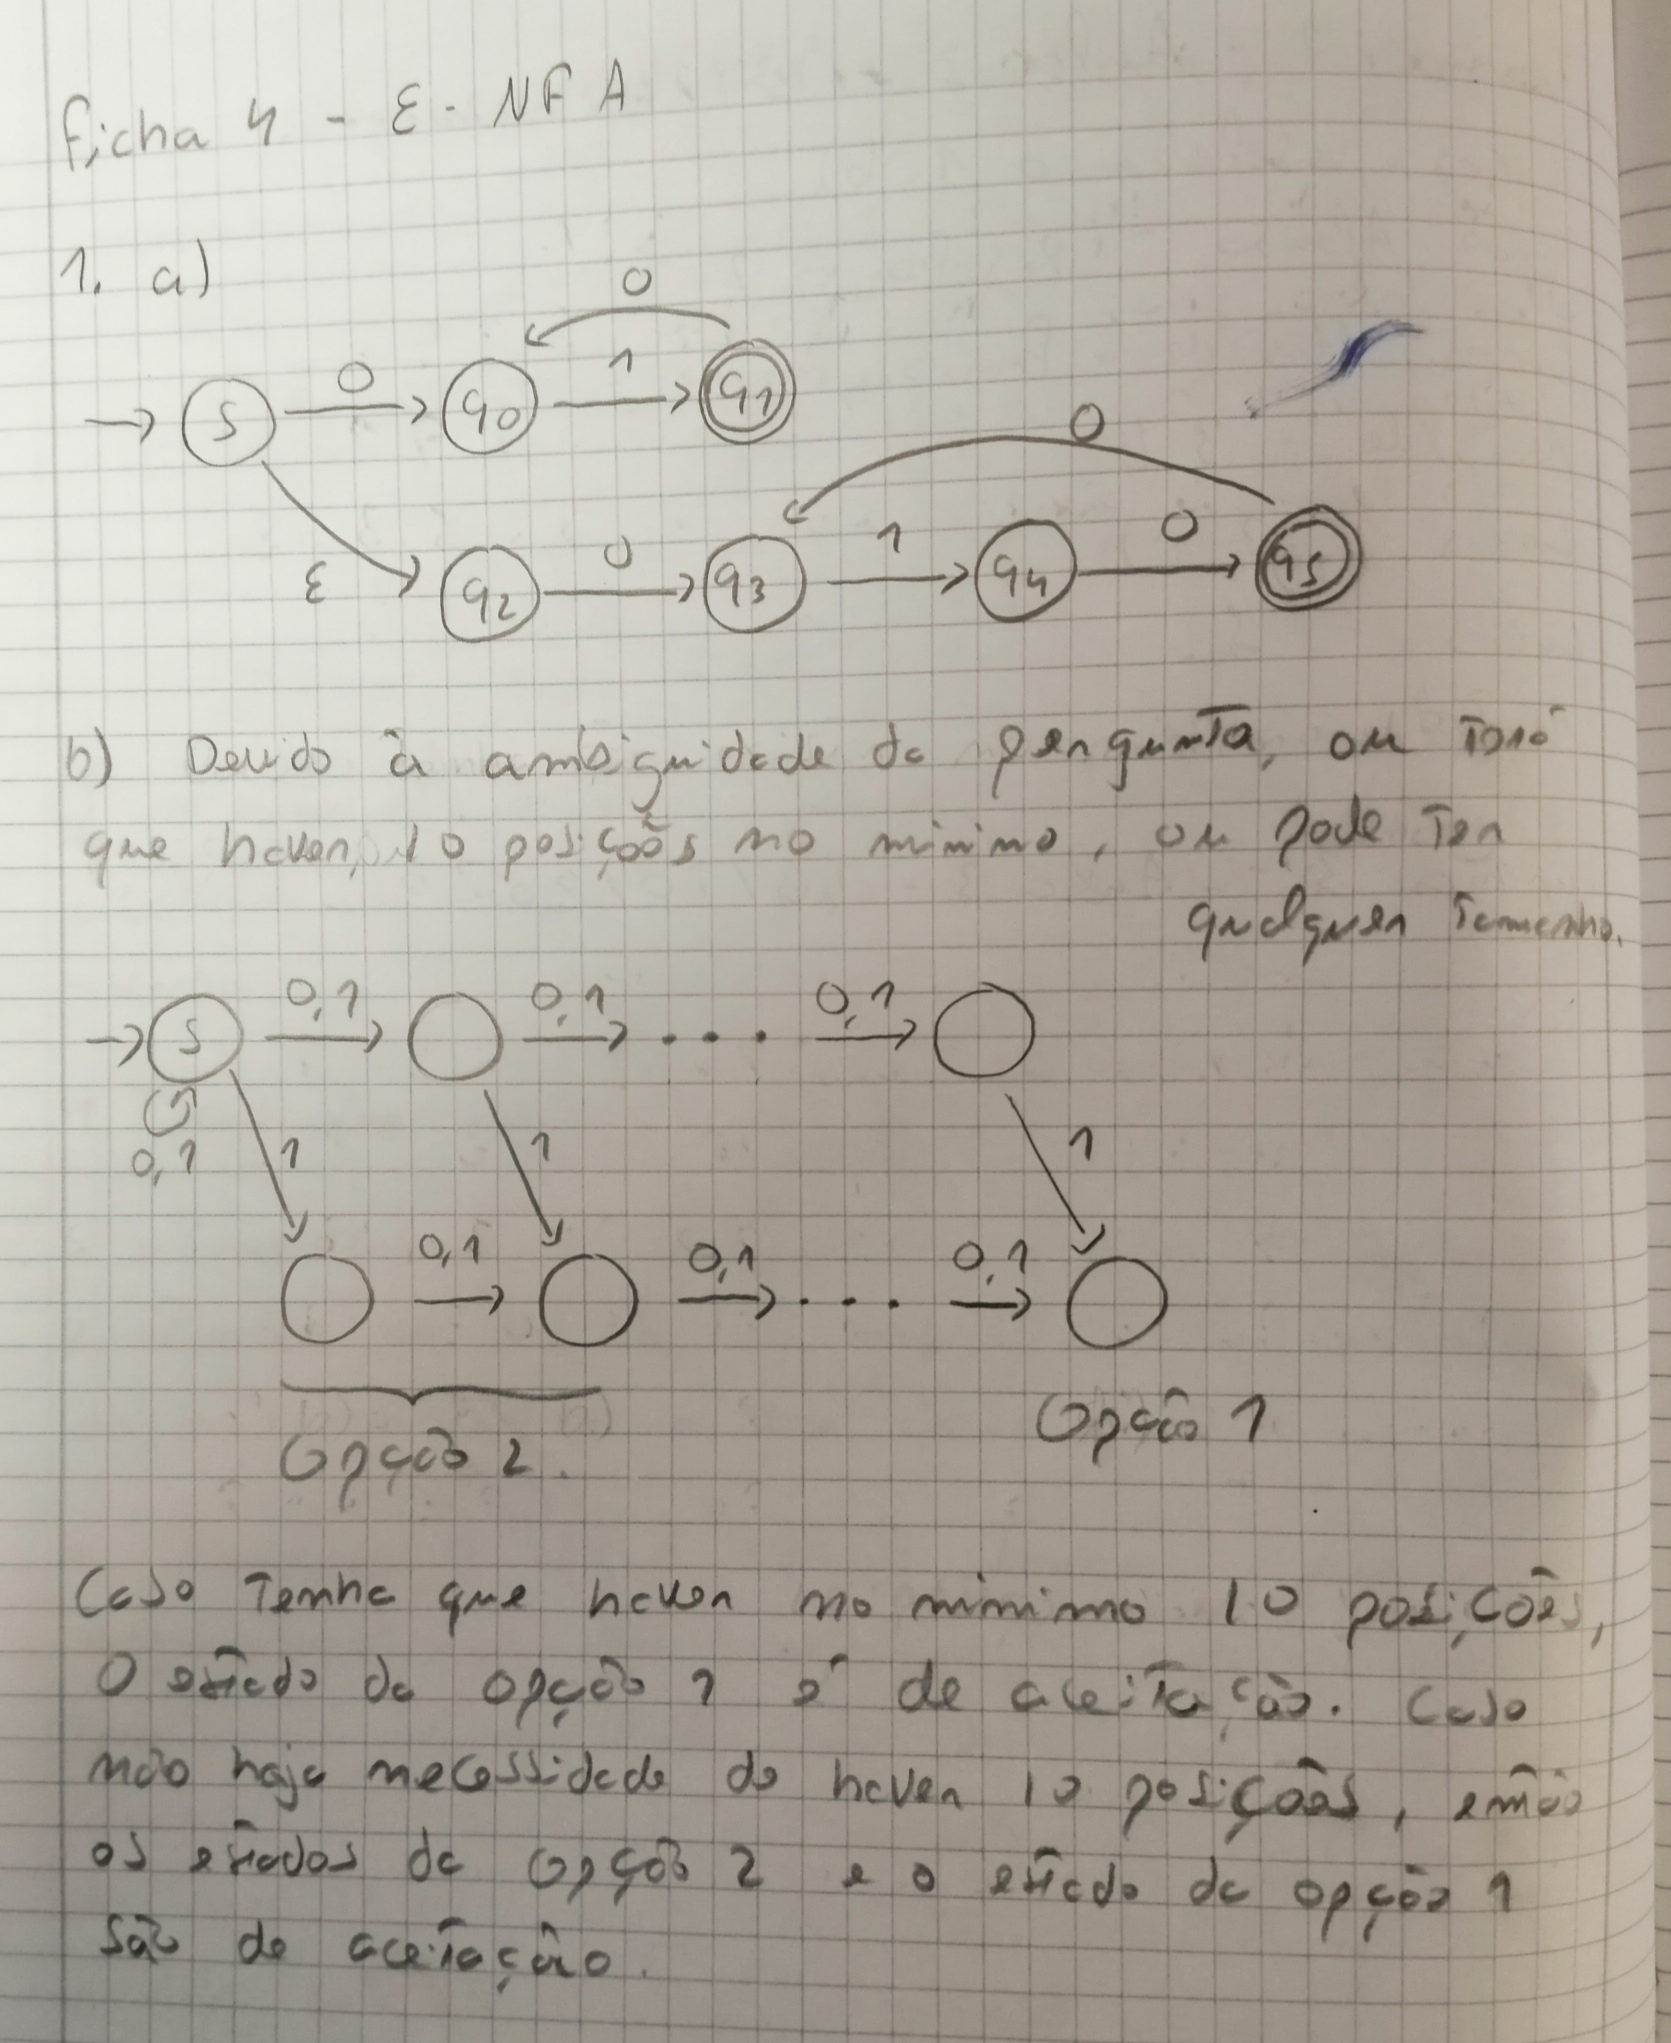 Ficha 4 - ε - NFA
1. a)
0
0 1
S q0 q1
0
0 1 0
ε q2 q3 q4 q5
b) Devido à ambiguidade da pergunta, ou terá
que haver 10 posições no mínimo, ou pode ter
qualquer tamanho.
0,1 0,1 ... 0,1
S
0,1 1 1 1
0,1 0,1 ... 0,1
Opção 2. Opção 1
Caso tenha que haver no mínimo 10 posições,
o estado da opção 1 é de aceitação. Caso
não haja necessidade de haver 10 posições, então
os estados da opção 2 e o estado da opção 1
são de aceitação.